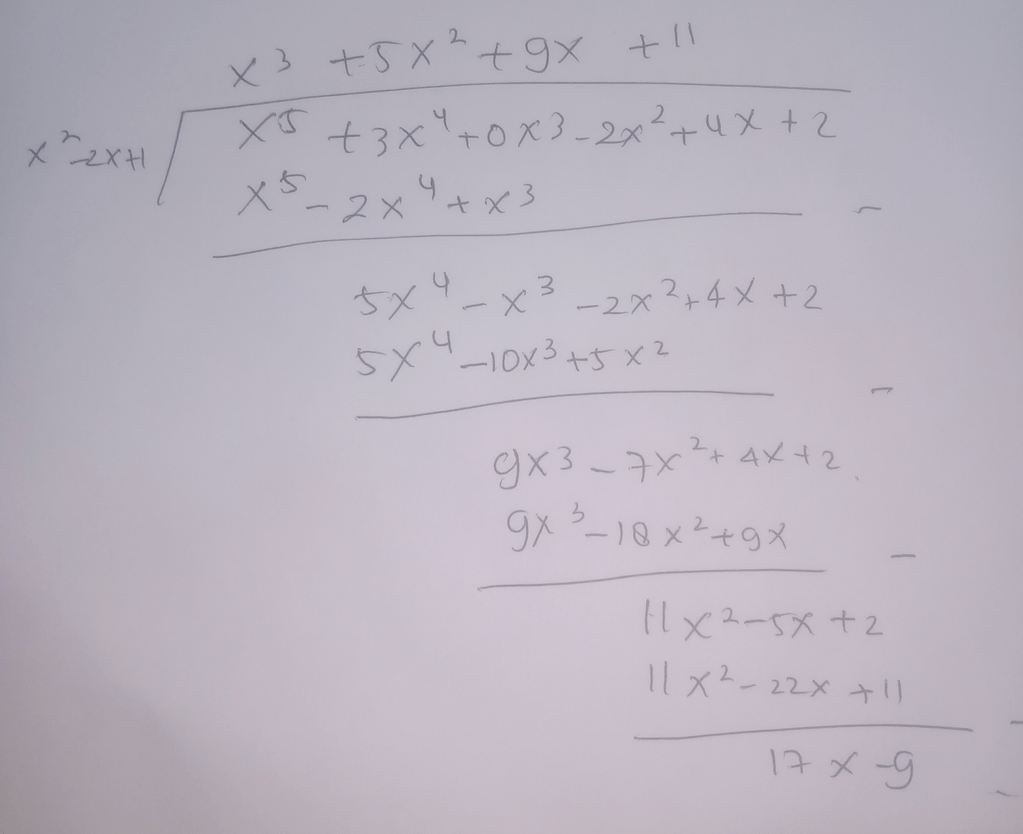 x³ + 5x² + 9x + 11
x² - 2x + 1
x⁵ + 3x⁴ + 0x³ - 2x² + 4x + 2
x⁵ - 2x⁴ + x³ -
5x⁴ - x³ - 2x² + 4x + 2
5x⁴ - 10x³ + 5x² -
9x³ - 7x² + 4x + 2
9x³ - 18x² + 9x -
11x² - 5x + 2
11x² - 22x + 11 -
17x - 9